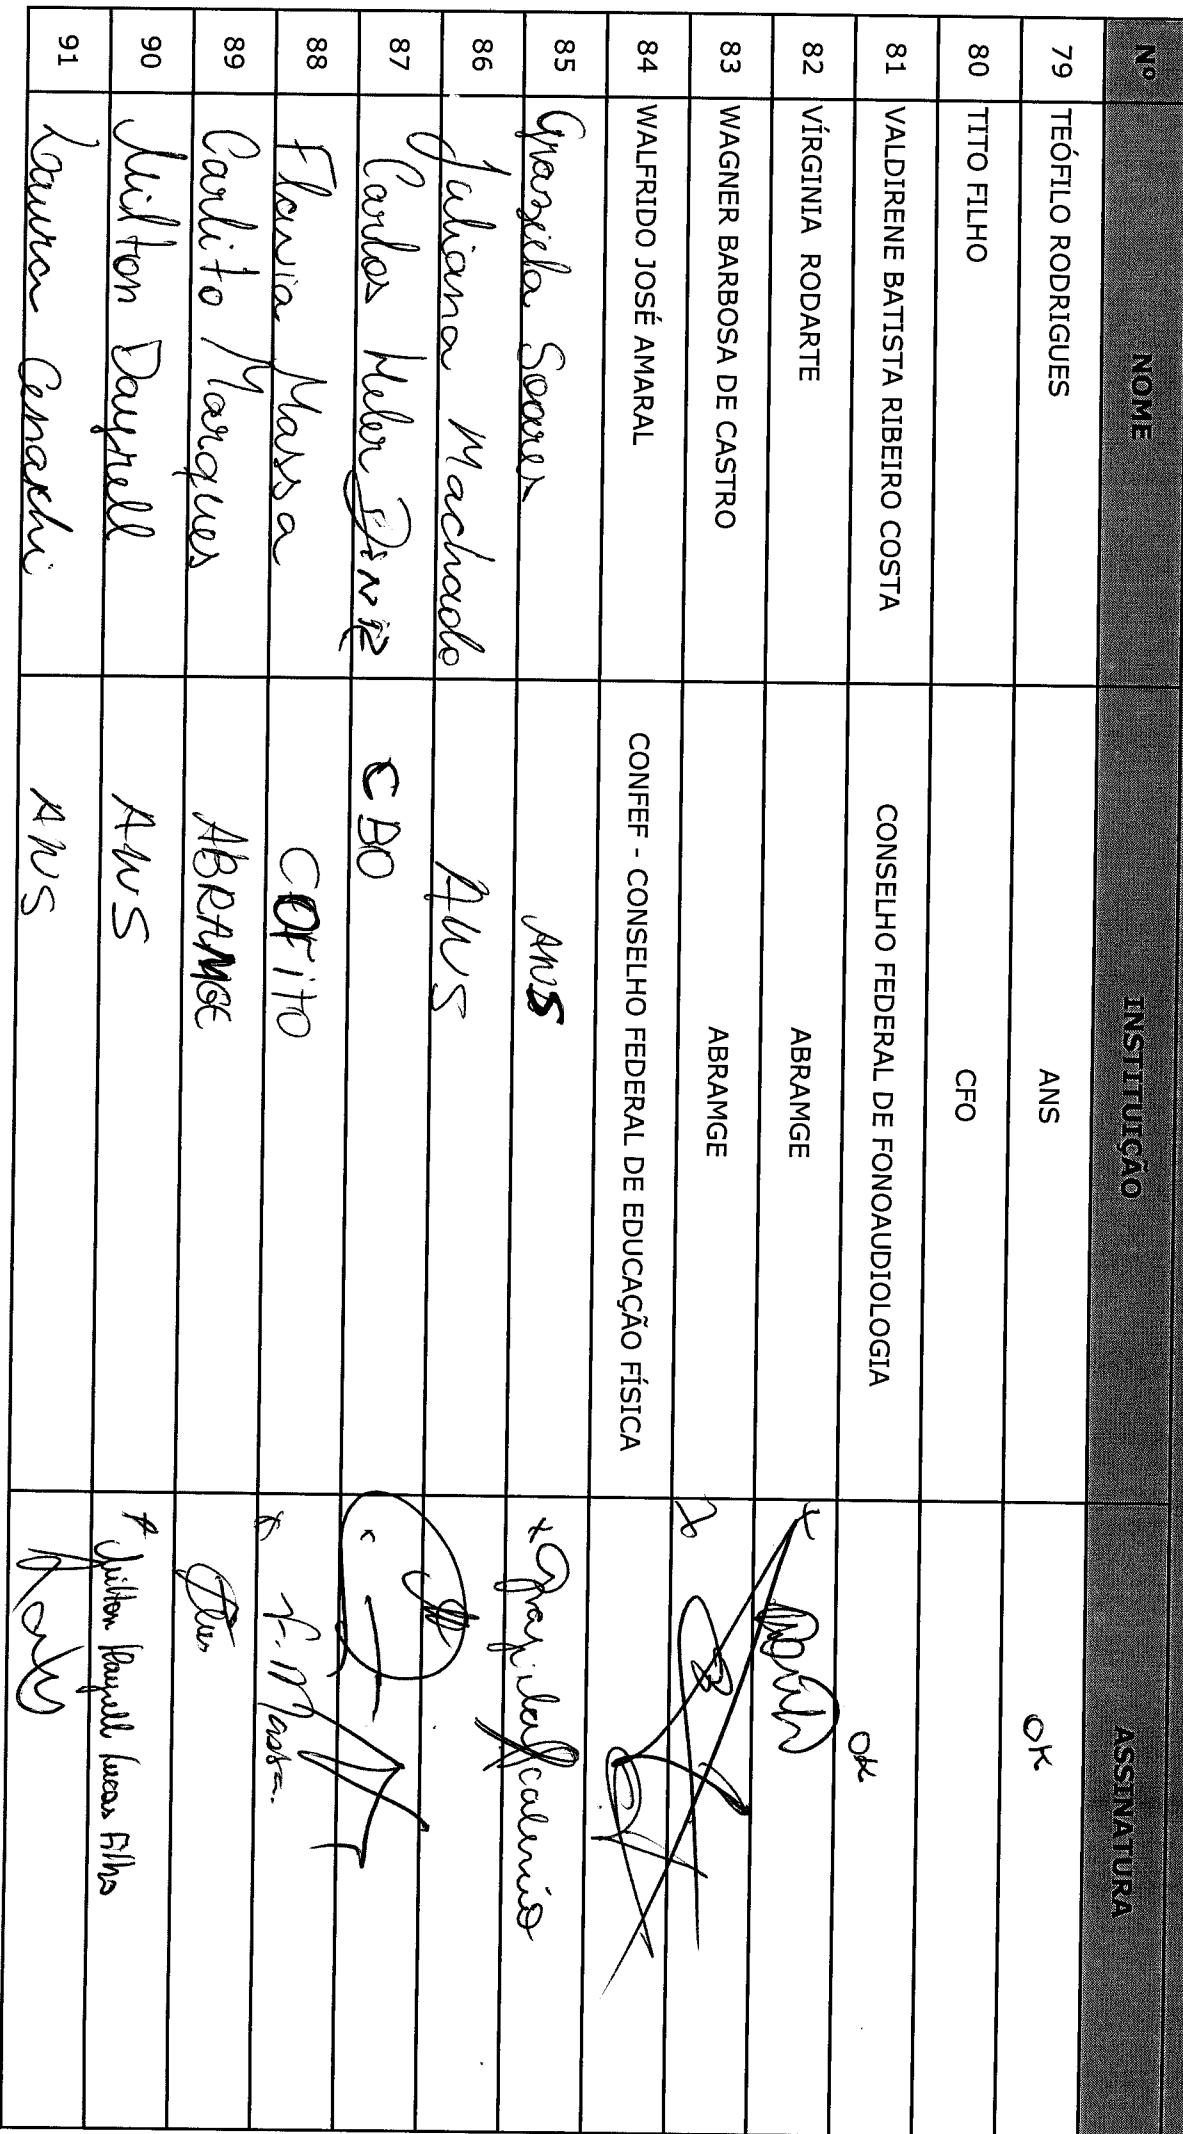 Nº NOME INSTITUIÇÃO ASSINATURA
79 TEÓFILO RODRIGUES ANS OK
80 TITO FILHO CFO
81 VALDIRENE BATISTA RIBEIRO COSTA CONSELHO FEDERAL DE FONOAUDIOLOGIA OK
82 VÍRGINIA RODARTE ABRAMGE
83 WAGNER BARBOSA DE CASTRO ABRAMGE
84 WALFRIDO JOSÉ AMARAL CONFEF - CONSELHO FEDERAL DE EDUCAÇÃO FÍSICA
85 Graziela Soares ANS
86 Juliana Machado ANS
87 Carlos Heler CBO
88 Flavia Massa COFITO F. Massa.
89 Carlito Marques ABRAMGE
90 Milton Dayrell ANS Milton Dayrell Lucas Filho
91 Laura ANS